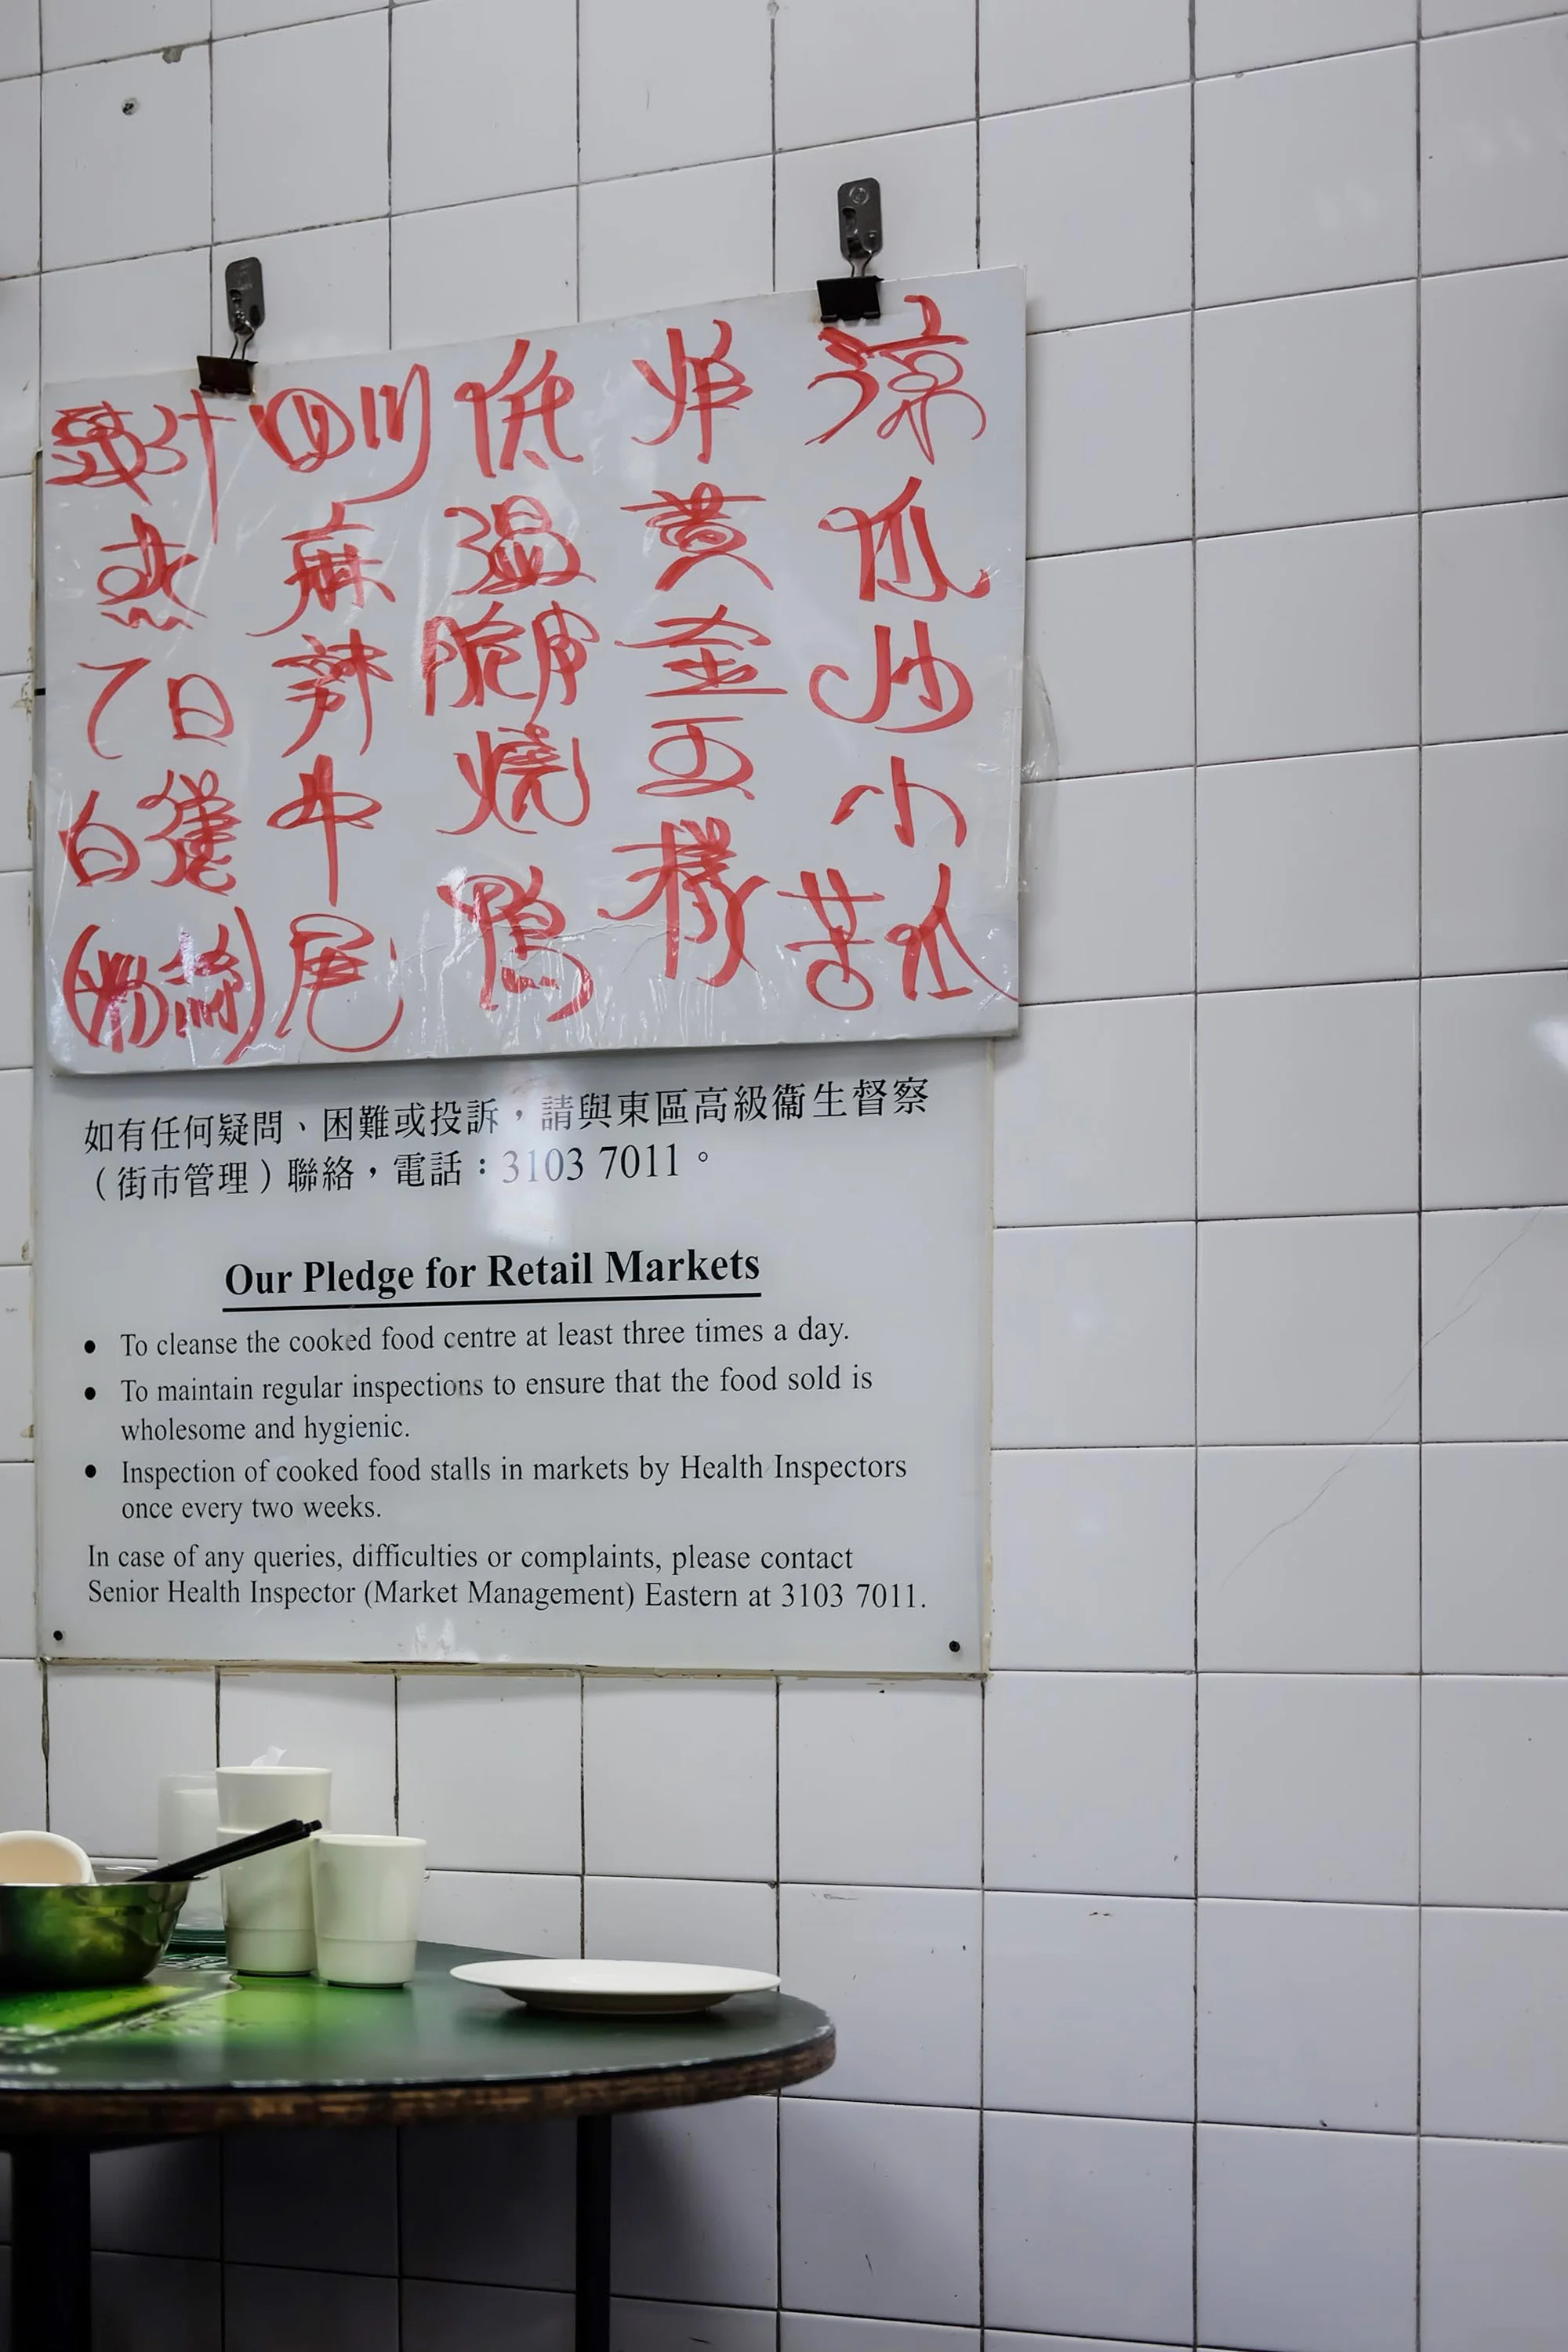 涼瓜炒小苦瓜
炸黃金
低溫脆皮燒鴨
四川麻辣牛尾
豉汁蒸
(粉絲)
如有任何疑問、困難或投訴，請與東區高級衞生督察
（街市管理）聯絡，電話：3103 7011。
Our Pledge for Retail Markets
● To cleanse the cooked food centre at least three times a day.
● To maintain regular inspections to ensure that the food sold is
wholesome and hygienic.
● Inspection of cooked food stalls in markets by Health Inspectors
once every two weeks.
In case of any queries, difficulties or complaints, please contact
Senior Health Inspector (Market Management) Eastern at 3103 7011.